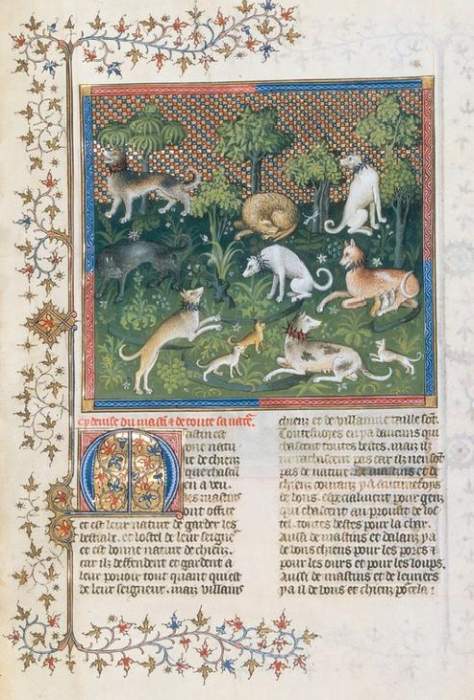 Cy deuise du mastī & de toute sa natē.
Mastin est
une natu
re de chien
que chascū
en a veu.
Les mastins
sont office
et est leur nature de garder les
bestiale. et lostel de leur seigne
et est bonne nature de chienz.
car ilz deffendent et gardent a
leur pouoir tout quant quest
de leur seigneur. maiz villains
chienz et de villainne taille sōt.
Toutesuoies en ya daucuns qui
chassent toutes bestes. maiz il
ne rachassent pas car il nen sōt
pas de nature. De mastins et de
chienz courans ya aucunefoys
de bons. especialment pour genz
qui chassent au proufit de los
tel. toutes bestes pour la char.
Aussi de mastins et dalanz ya
de bons chienz pour les porcs &
pour les ours et pour les loups.
Aussi de mastins et de leuriers
ya il de bons et chienz po cela: